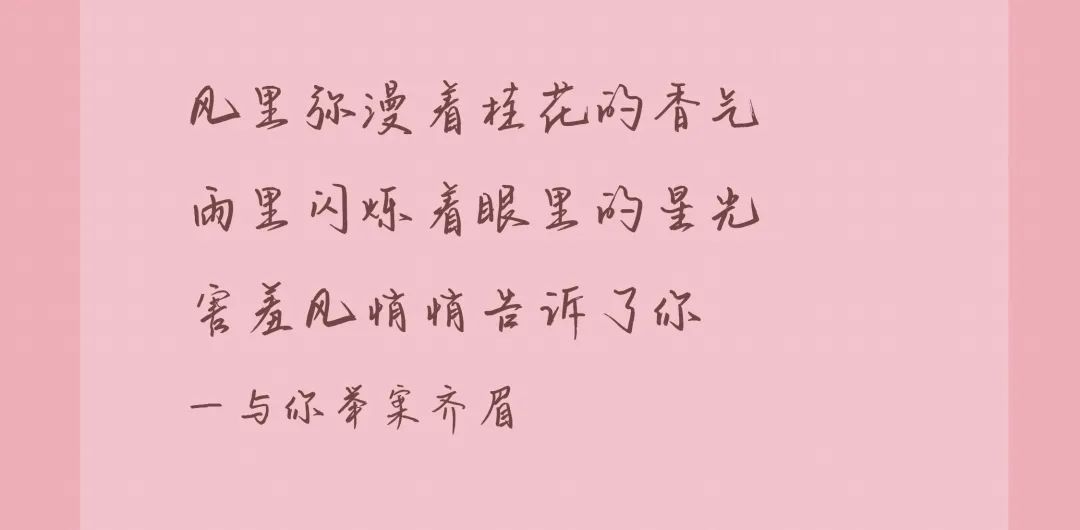 风里弥漫着桂花的香气
雨里闪烁着眼里的星光
害羞风悄悄告诉了你
—与你举案齐眉